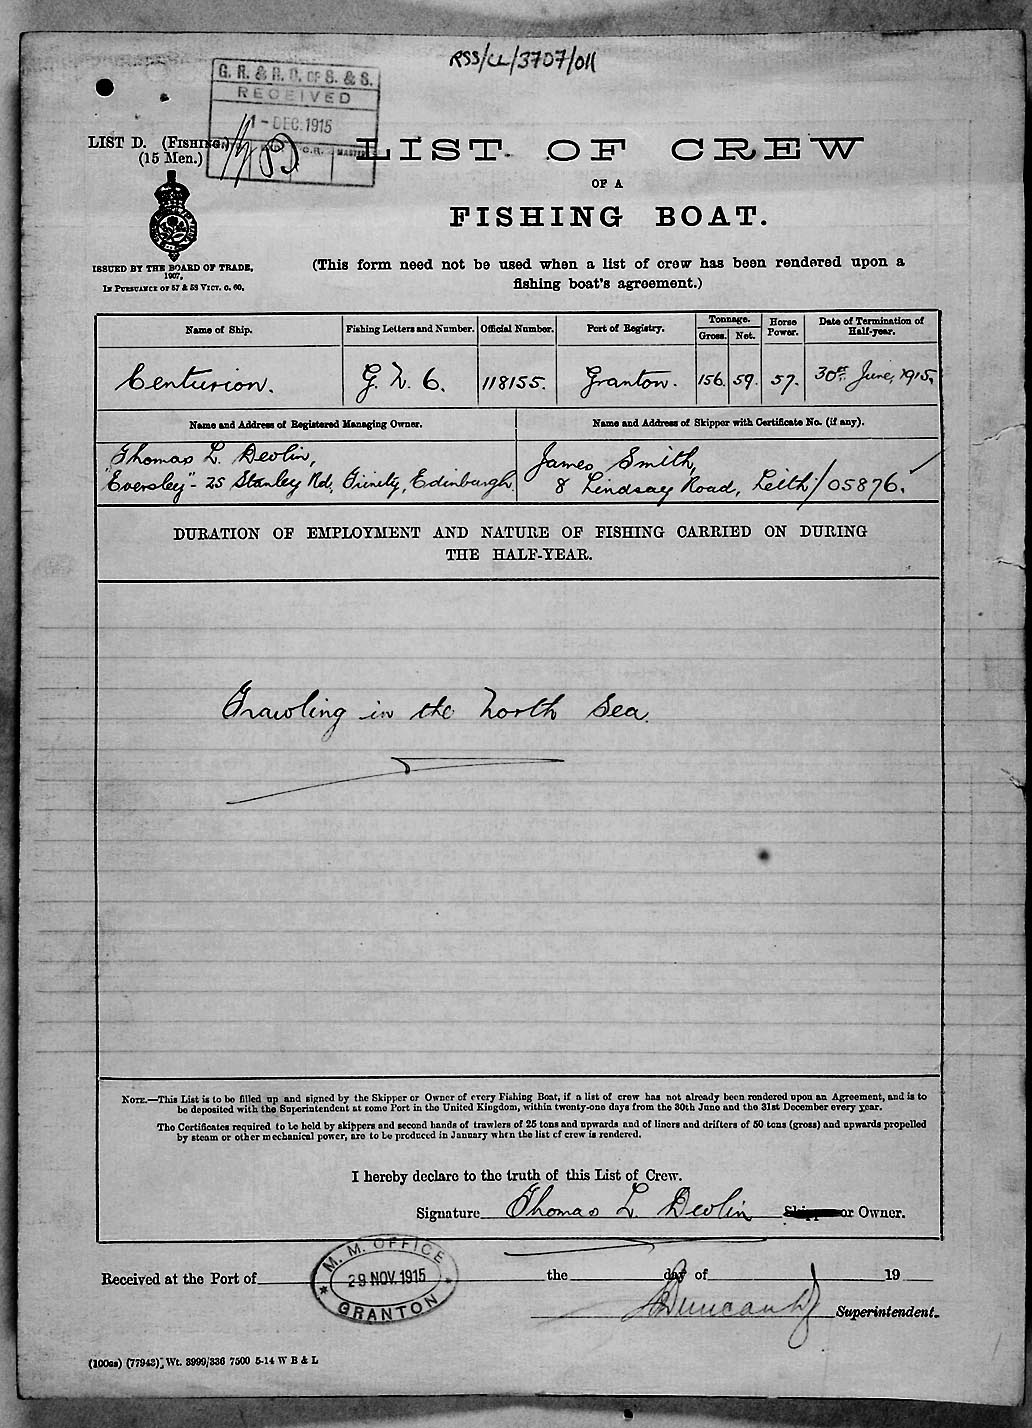 RSS/CL/3707/011
G. R. & R. O. OF S. & S.
RECEIVED
1 - DEC. 1915
MASTER
LIST D. (FISHING.)
(15 Men.)
LIST OF CREW
OF A
FISHING BOAT.
ISSUED BY THE BOARD OF TRADE.
1907.
IN PURSUANCE OF 57 & 58 VICT. C. 60.
(This form need not be used when a list of crew has been rendered upon a
fishing boat's agreement.)
Name of Ship. Fishing Letters and Number. Official Number. Port of Registry. Tonnage. Gross. Net. Horse Power. Date of Termination of Half-year.
Centurion. G. N. 6. 118155. Granton. 156. 59. 57. 30th June, 1915.
Name and Address of Registered Managing Owner. Name and Address of Skipper with Certificate No. (if any).
Thomas L. Devlin,
"Eversley" - 25 Stanley Rd, Trinity, Edinburgh.
James Smith,
8 Lindsay Road, Leith / 05876.
DURATION OF EMPLOYMENT AND NATURE OF FISHING CARRIED ON DURING
THE HALF-YEAR.
Trawling in the North Sea.
NOTE.—This List is to be filled up and signed by the Skipper or Owner of every Fishing Boat, if a list of crew has not already been rendered upon an Agreement, and is to
be deposited with the Superintendent at some Port in the United Kingdom, within twenty-one days from the 30th June and the 31st December every year.
The Certificates required to be held by skippers and second hands of trawlers of 25 tons and upwards and of liners and drifters of 50 tons (gross) and upwards propelled
by steam or other mechanical power, are to be produced in January when the list of crew is rendered.
I hereby declare to the truth of this List of Crew.
Signature Thomas L. Devlin Skipper or Owner.
M. M. OFFICE
29 NOV. 1915
GRANTON
Received at the Port of the day of 19
Duncan Superintendent.
(100ss) (77943) Wt. 3999/336 7500 5-14 W B & L